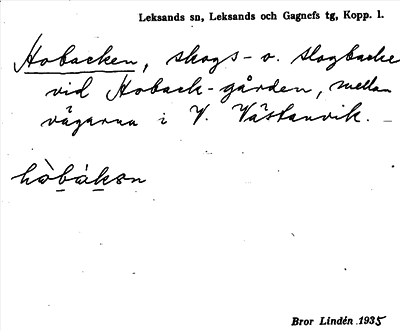 Leksands sn, Leksands och Gagnefs tg, Kopp. l.
Hobacken, skogs- o. slogbacke
vid Hoback-gården, mellan
vägarna i V. Västanvik.
hò̀bàkən
Bror Lindén 1935